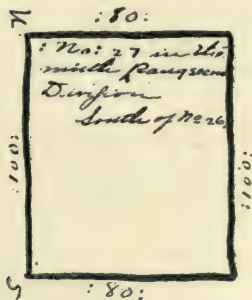 N
:80:
: No: 27 in the
ninth Rang secon
Division
South of No 26
:100:
:100:
S
:80: